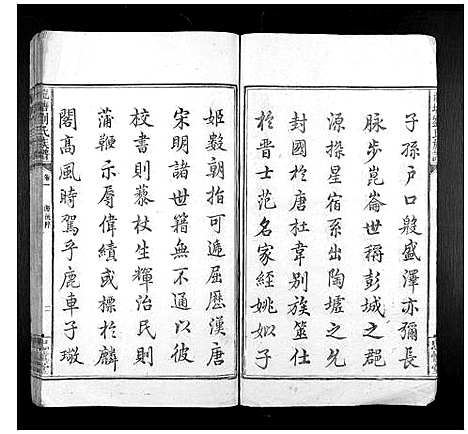 子孫戶口殷盛澤亦彌長
脉步崑崙世稱彭城之郡
源探星宿系出陶墟之允
封國於唐杜韋別族筮仕
於晋士范名家經姚如子
姬數朝指可遞屈歷漢唐
宋明諸世籍無不通以彼
校書則藜杖生輝治民則
蒲鞭示辱偉績或標於麟
閣高風時駕乎鹿車子璈
劉氏族譜
卷一